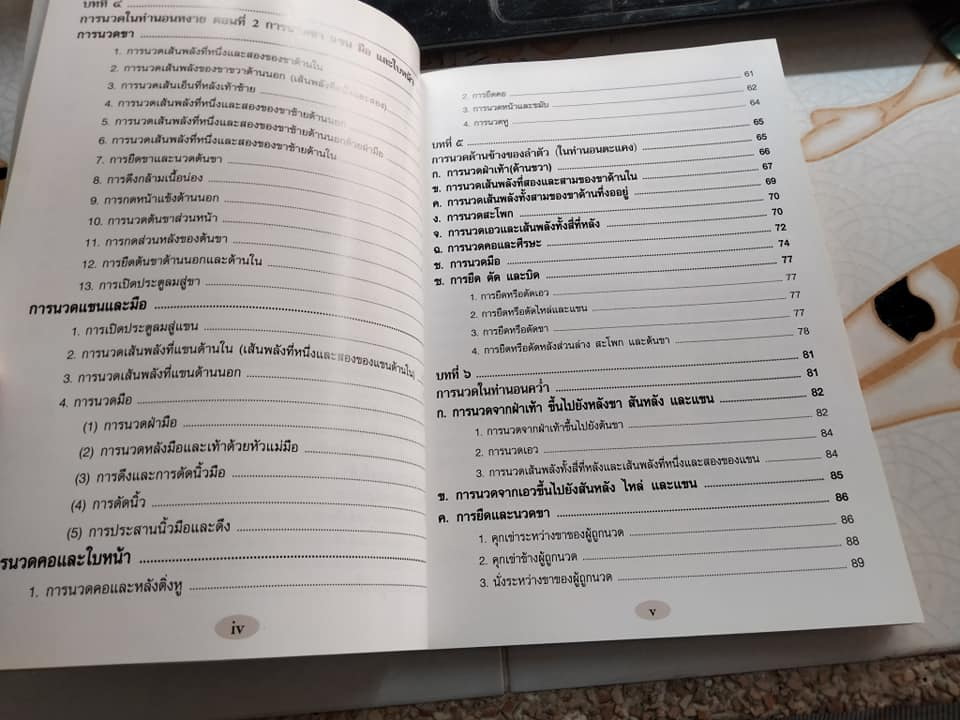 บทที่ ๔
การนวดในท่านอนหงาย ตอนที่ 2 การนวดขา แขน มือ และใบหน้า
การนวดขา
1. การนวดเส้นพลังที่หนึ่งและสองของขาด้านใน
2. การนวดเส้นพลังของขาขวาด้านนอก (เส้นพลังที่หนึ่งและสอง)
3. การนวดเส้นเอ็นที่หลังเท้าซ้าย
4. การนวดเส้นพลังที่หนึ่งและสองของขาซ้ายด้านนอก
5. การนวดเส้นพลังที่หนึ่งและสองของขาซ้ายด้านนอกด้วยฝ่ามือ
6. การนวดเส้นพลังที่หนึ่งและสองของขาซ้ายด้านใน
7. การยืดขาและนวดต้นขา
8. การดึงกล้ามเนื้อน่อง
9. การกดหน้าแข้งด้านนอก
10. การนวดต้นขาส่วนหน้า
11. การกดส่วนหลังของต้นขา
12. การยืดต้นขาด้านนอกและด้านใน
13. การเปิดประตูลมสู่ขา
การนวดแขนและมือ
1. การเปิดประตูลมสู่แขน
2. การนวดเส้นพลังที่แขนด้านใน (เส้นพลังที่หนึ่งและสองของแขนด้านใน)
3. การนวดเส้นพลังที่แขนด้านนอก
4. การนวดมือ
(1) การนวดฝ่ามือ
(2) การนวดหลังมือและเท้าด้วยหัวแม่มือ
(3) การดึงและการดัดนิ้วมือ
(4) การดัดนิ้ว
(5) การประสานนิ้วมือและดึง
ารนวดคอและใบหน้า
1. การนวดคอและหลังติ่งหู
iv
2. การยืดคอ 61
3. การนวดหน้าและขมับ 62
4. การนวดหู 64
บทที่ ๕ 65
การนวดด้านข้างของลำตัว (ในท่านอนตะแคง) 65
ก. การนวดฝ่าเท้า(ด้านขวา) 66
ข. การนวดเส้นพลังที่สองและสามของขาด้านใน 67
ค. การนวดเส้นพลังทั้งสามของขาด้านที่งออยู่ 69
ง. การนวดสะโพก 70
จ. การนวดเอวและเส้นพลังทั้งสี่ที่หลัง 70
ฉ. การนวดคอและศีรษะ 72
ช. การนวดมือ 74
ซ. การยืด ดัด และบิด 77
1. การยืดหรือดัดเอว 77
2. การยืดหรือดัดไหล่และแขน 77
3. การยืดหรือดัดขา 77
4. การยืดหรือดัดหลังส่วนล่าง สะโพก และต้นขา 78
บทที่ ๖ 81
การนวดในท่านอนคว่ำ 81
ก. การนวดจากฝ่าเท้า ขึ้นไปยังหลังขา สันหลัง และแขน 82
1. การนวดจากฝ่าเท้าขึ้นไปยังต้นขา 82
2. การนวดเอว 84
3. การนวดเส้นพลังทั้งสี่ที่หลังและเส้นพลังที่หนึ่งและสองของแขน 84
ข. การนวดจากเอวขึ้นไปยังสันหลัง ไหล่ และแขน 85
ค. การยืดและนวดขา 86
1. คุกเข่าระหว่างขาของผู้ถูกนวด 86
2. คุกเข่าข้างผู้ถูกนวด 88
3. นั่งระหว่างขาของผู้ถูกนวด 89
v